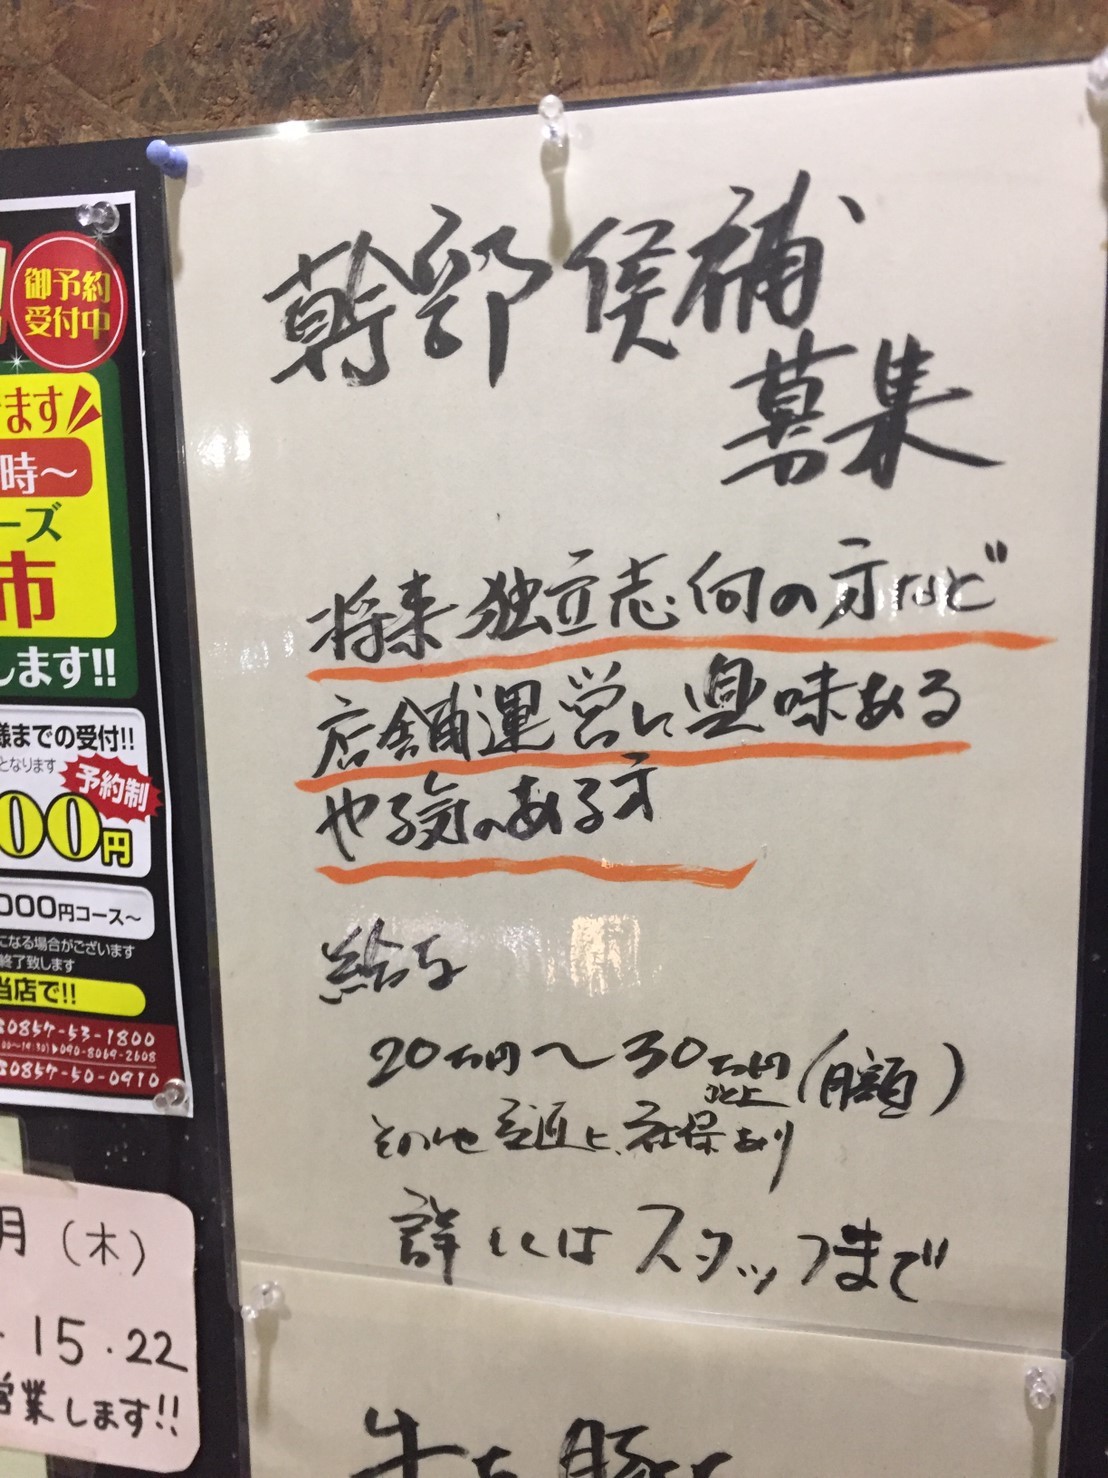 幹部候補
募集
将来独立志向の方など
店舗運営に興味ある
やる気のある方
給与
20万円〜30万円以上(月額)
その他 交通ヒ、社保あり
詳しくはスタッフまで
牛も豚も
御予約
受付中
ます
時〜
ーズ
市
します!!
様までの受付!!
となります
予約制
00円
000円コース〜
になる場合がございます
終了致します
当店で!!
0857-53-1800
090-8069-2608
0857-50-0910
月(木)
15.22
営業します!!